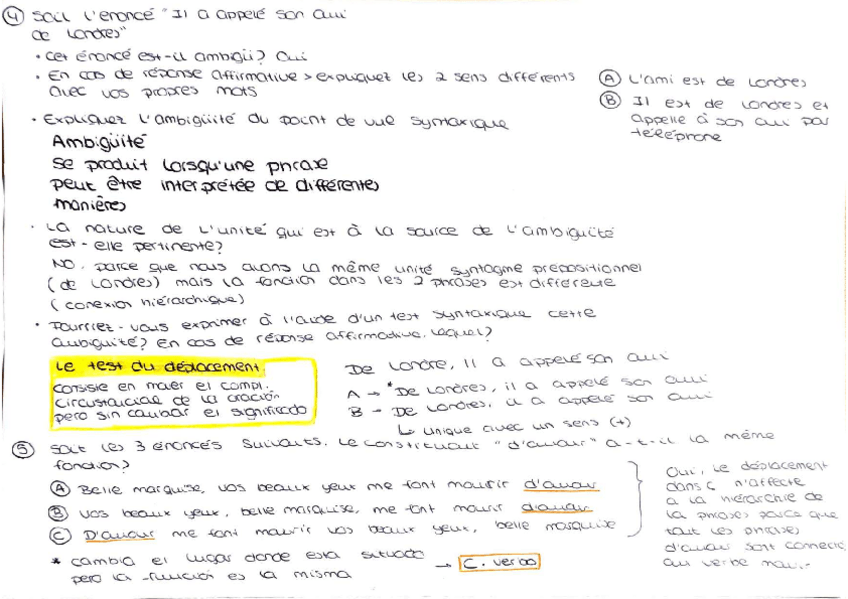 ④ Soit l'énoncé "Il a appelé son ami
de Londres"
• Cet énoncé est-il ambigü? Oui
• En cas de réponse affirmative > expliquez les 2 sens différents
avec vos propres mots
Ⓐ L'ami est de Londres
Ⓑ Il est de Londres et
appelle à son ami par
téléphone
• Expliquez l'ambigüité du point de vue syntaxique
Ambigüité
Se produit lorsqu'une phrase
peut être interprétée de différentes
manières
• La nature de l'unité qui est à la source de l'ambigüité
est-elle pertinente?
NO. parce que nous avons la même unité syntagme prépositionnel
(de Londres) mais la fonction dans les 2 phrases est différente
(conexion hiérarchique)
• Pourriez-vous exprimer à l'aide d'un test syntaxique cette
ambiguité? En cas de réponse affirmative, lequel?
Le test du déplacement
consiste en mover el compl.
circustancial de la oración
pero sin cambiar el significado
De Londre, il a appelé son ami
A → *De Londres, il a appelé son ami
B - De Londres, il a appelé son ami
↳ unique avec un sens (+)
⑤ Soit les 3 énoncés suivants. Le constituant "d'amour" a-t-il la même
fonction?
Ⓐ Belle marquise, vos beaux yeux me font mourir d'amour
Ⓑ Vos beaux yeux, belle marquise, me font mourir d'amour
Ⓒ D'amour me font mourir vos beaux yeux, belle marquise
* cambia el lugar donde esta situado
pero la función es la misma
→ C. verbo
Oui, le déplacement
dans C n'affecte
a la hiérarchie de
la phrases parce que
tout les phrases
d'amour sont connecté
au verbe